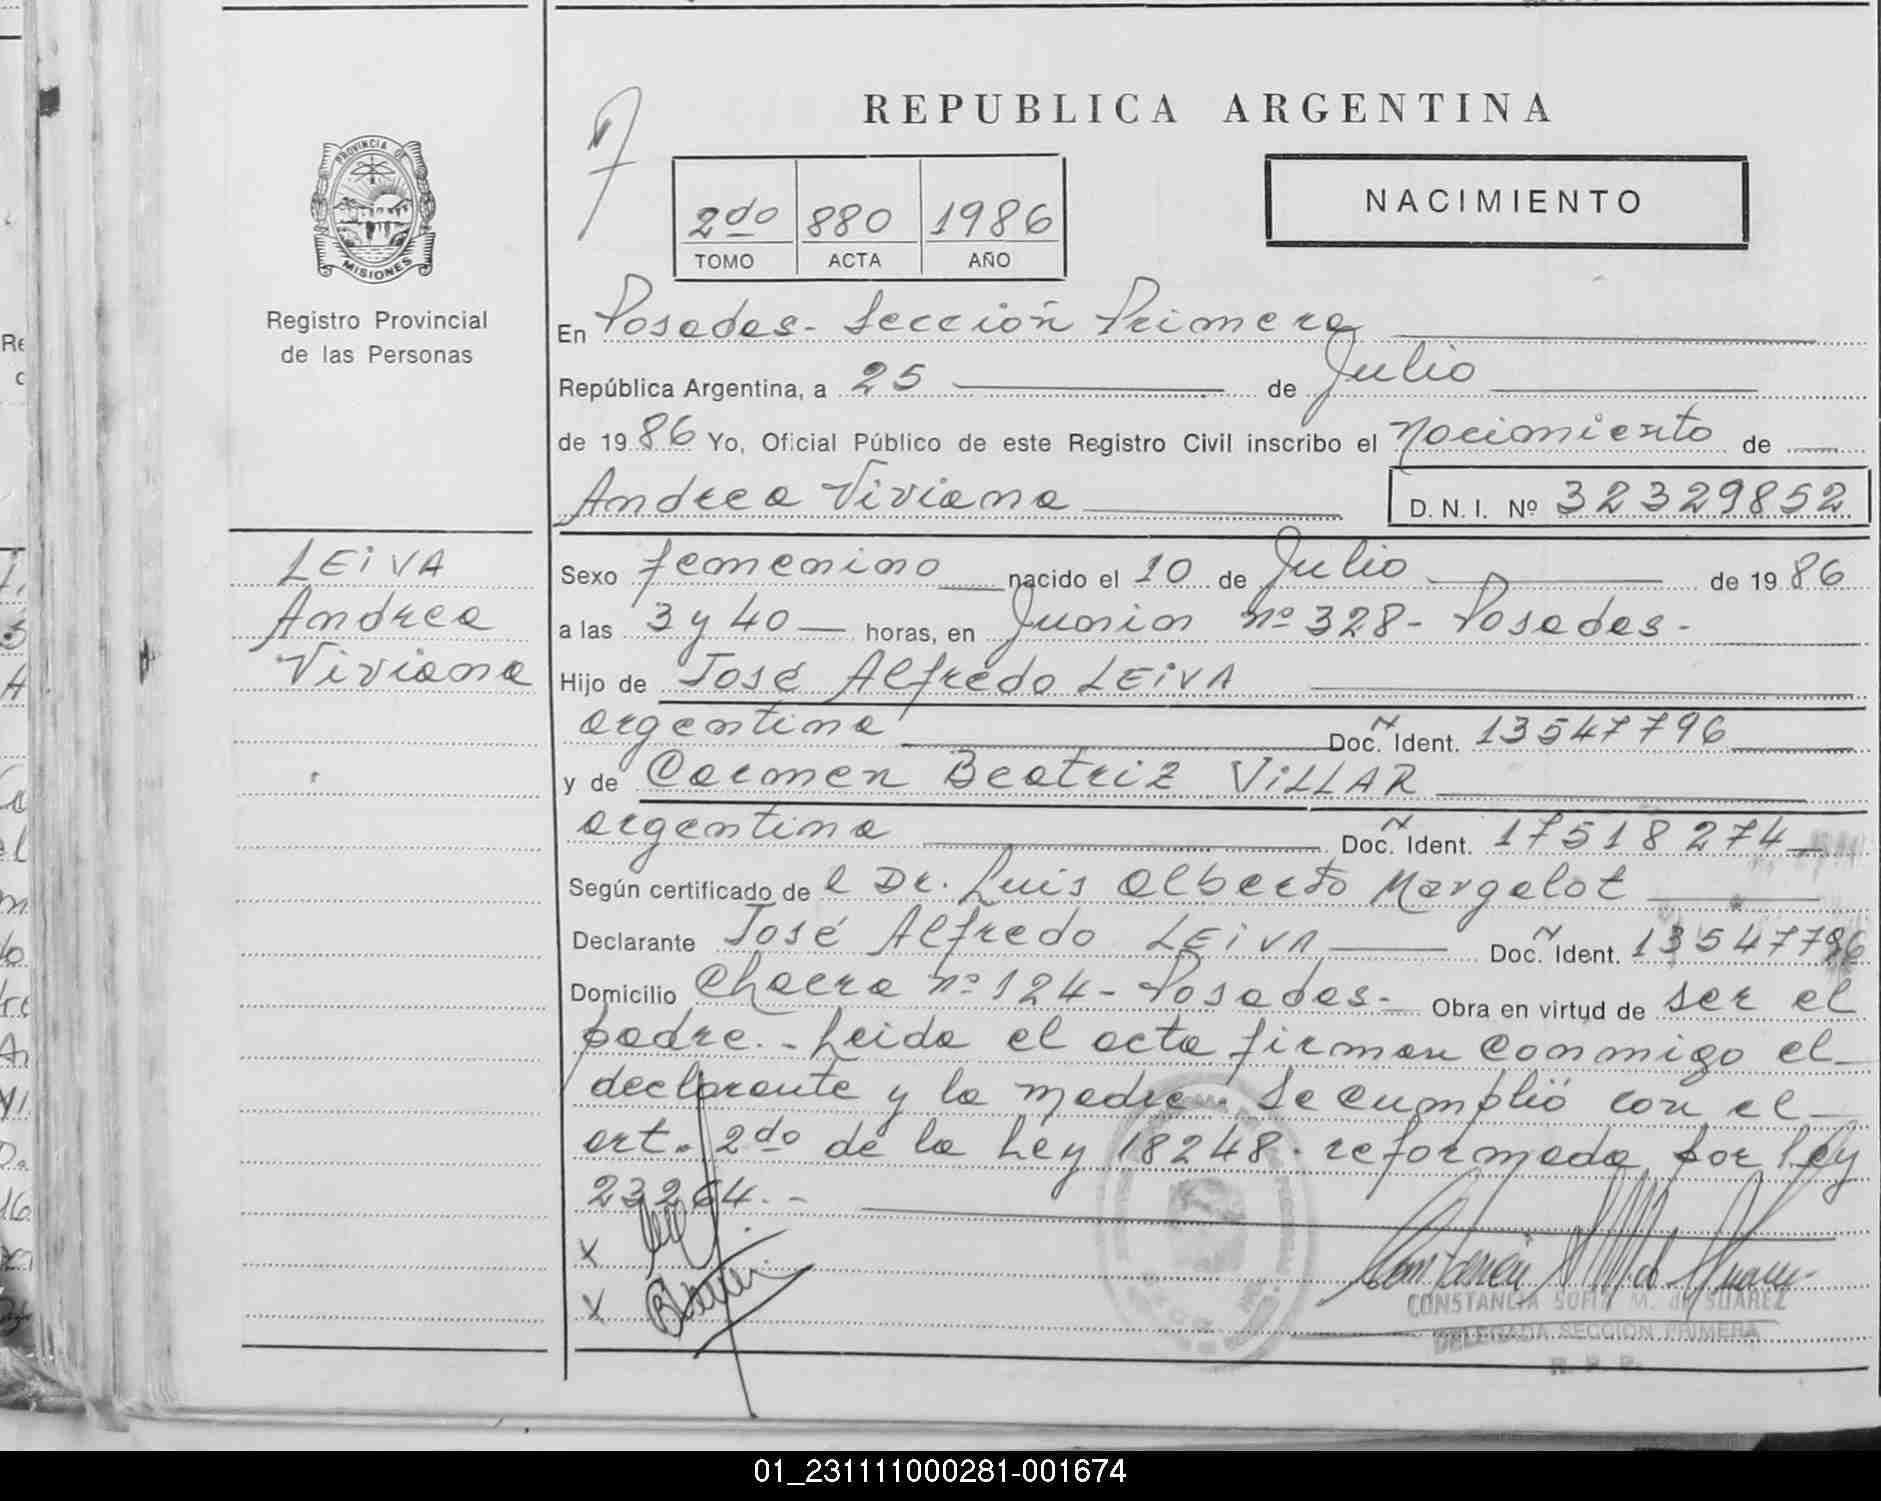 REPUBLICA ARGENTINA
PROVINCIA DE
MISIONES
Registro Provincial
de las Personas
2do 880 1986
TOMO ACTA AÑO
NACIMIENTO
En Posadas - Sección Primera
República Argentina, a 25 de Julio
de 1986 Yo, Oficial Público de este Registro Civil inscribo el Nacimiento de
Andrea Viviana D. N. I. Nº 32329852
LEIVA
Andrea
Viviana
Sexo femenino nacido el 10 de Julio de 1986
a las 3 y 40 horas, en Junin nº 328 - Posadas -
Hijo de José Alfredo LEIVA
argentina Doc. Ident. 13547796
y de Carmen Beatriz VILLAR
argentina Doc. Ident. 17518274
Según certificado de l Dr. Luis Alberto Margalot
Declarante José Alfredo LEIVA Doc. Ident. 13547796
Domicilio Chacra nº 124 - Posadas - Obra en virtud de ser el
padre. - Leida el acta firman conmigo el
declarante y la madre. Se cumplió con el
art. 2do de la Ley 18248. reformada por ley
23264. -
x
x
CONSTANCIA SOFIA M. de SUAREZ
DELEGADA SECCION PRIMERA
R. P. P.
01_231111000281-001674